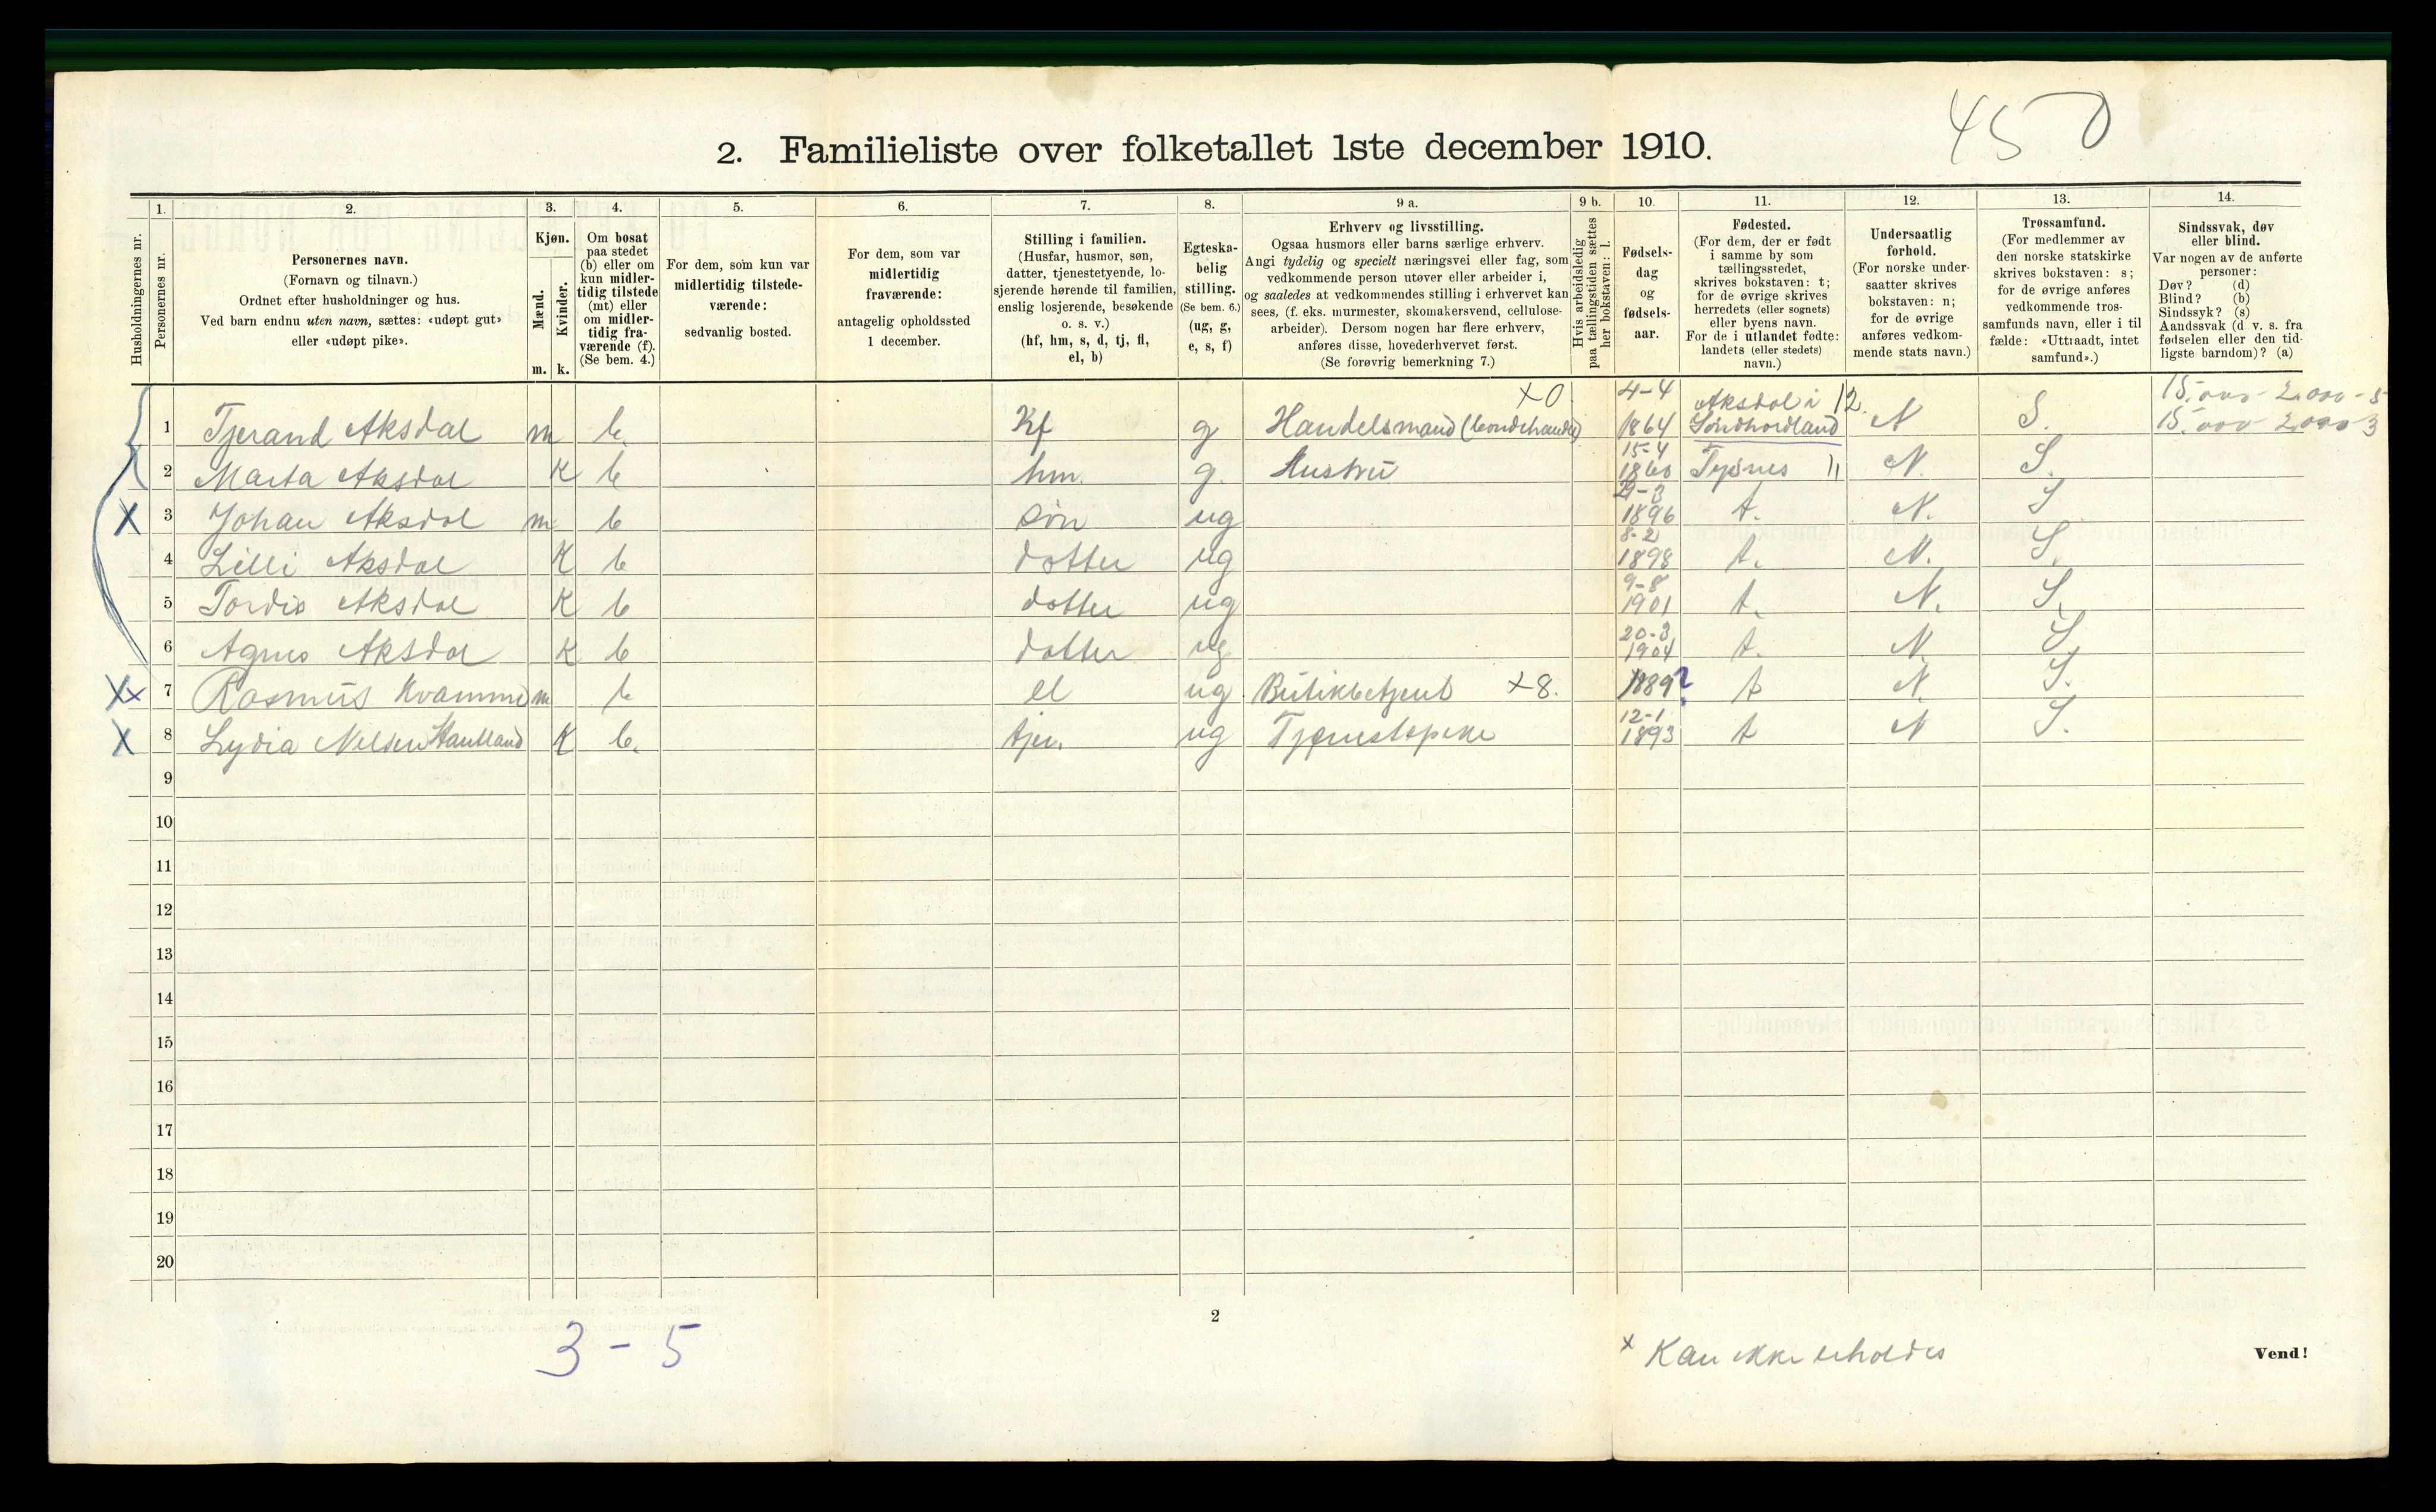 450
2. Familieliste over folketallet 1ste december 1910.
1. 2. 3. 4. 5. 6. 7. 8. 9 a. 9 b. 10. 11. 12. 13. 14.
Husholdningernes nr.
Personernes nr.
Personernes navn.
(Fornavn og tilnavn.)
Ordnet efter husholdninger og hus.
Ved barn endnu uten navn, sættes: «udøpt gut»
eller «udøpt pike».
Kjøn.
Mænd.
Kvinder.
m. k.
Om bosat
paa stedet
(b) eller om
kun midler-
tidig tilstede
(mt) eller
om midler-
tidig fra-
værende (f).
(Se bem. 4.)
For dem, som kun var
midlertidig tilstede-
værende:
sedvanlig bosted.
For dem, som var
midlertidig
fraværende:
antagelig opholdssted
1 december.
Stilling i familien.
(Husfar, husmor, søn,
datter, tjenestetyende, lo-
sjerende hørende til familien,
enslig losjerende, besøkende
o. s. v.)
(hf, hm, s, d, tj, fl,
el, b)
Egteska-
belig
stilling.
(Se bem. 6.)
(ug, g,
e, s, f)
Erhverv og livsstilling.
Ogsaa husmors eller barns særlige erhverv.
Angi tydelig og specielt næringsvei eller fag, som
vedkommende person utøver eller arbeider i,
og saaledes at vedkommendes stilling i erhvervet kan
sees, (f. eks. murmester, skomakersvend, cellulose-
arbeider). Dersom nogen har flere erhverv,
anføres disse, hovederhvervet først.
(Se forøvrig bemerkning 7.)
Hvis arbeidsledig
paa tællingstiden sættes
her bokstaven: l.
Fødsels-
dag
og
fødsels-
aar.
Fødested.
(For dem, der er født
i samme by som
tællingsstedet,
skrives bokstaven: t;
for de øvrige skrives
herredets (eller sognets)
eller byens navn.
For de i utlandet fødte:
landets (eller stedets)
navn.)
Undersaatlig
forhold.
(For norske under-
saatter skrives
bokstaven: n;
for de øvrige
anføres vedkom-
mende stats navn.)
Trossamfund.
(For medlemmer av
den norske statskirke
skrives bokstaven: s;
for de øvrige anføres
vedkommende tros-
samfunds navn, eller i til
fælde: «Uttraadt, intet
samfund».)
Sindssvak, døv
eller blind.
Var nogen av de anførte
personer:
Døv? (d)
Blind? (b)
Sindssyk? (s)
Aandssvak (d. v. s. fra
fødselen eller den tid-
ligste barndom)? (a)
X0 4-4 Aksdal i 12 15.000 2.000-5
1 Tjerand Aksdal m b. Hf g Handelsmand (bondehandel) 1864 Søndhordland N S. 15.000 2.000 3
2 Marta Aksdal K b hm. g. Hustru 15-4 1860 Tysnes 11 N. S.
X 3 Johan Aksdal m b søn ug 1896 t. N. S
4 Lilli Aksdal K b dotter ug 8-2 1898 t. N. S.
5 Tordis Aksdal K b dotter ug 9-8 1901 t. N. S.
6 Agnes Aksdal K b dotter ug 20-3 1904 t. N S.
XX 7 Rasmus Kvamme m b el ug. Butikbetjent X8. 1889? t N. S.
X 8 Lydia Nelsen K b. tjen. ug Tjenestepike 12-1 1893 t N S.
9
10
11
12
13
14
15
16
17
18
19
20
2
3-5
x Kan ikke erholdes
Vend!